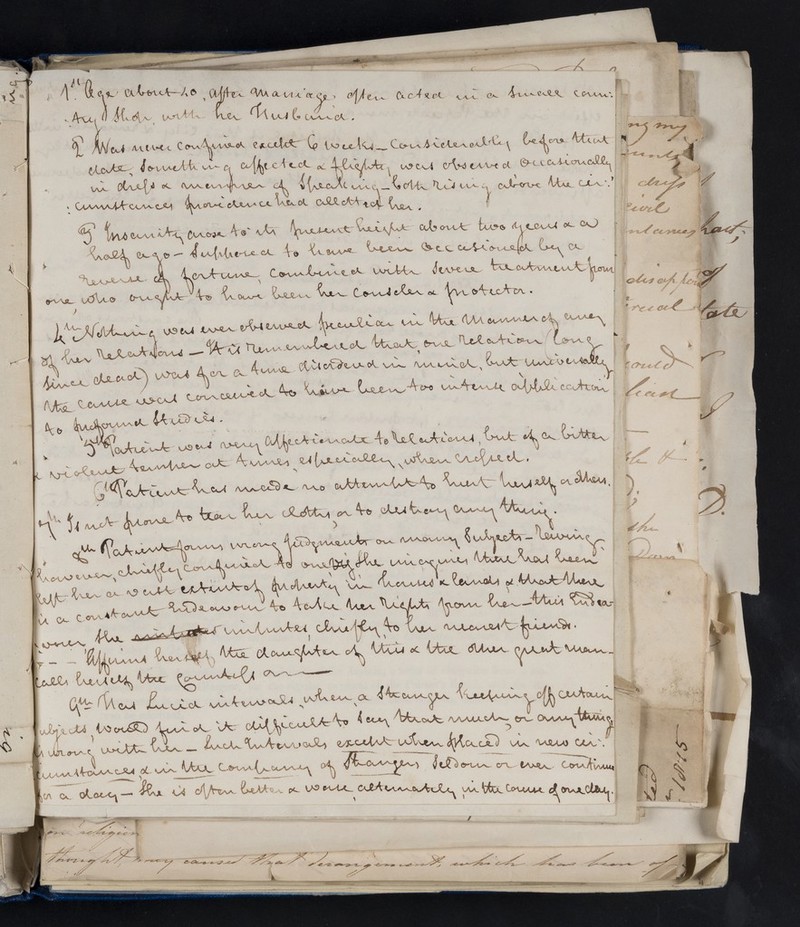 1st Age about 40, after marriage often acted in a small coun:
:try Shop, with her Husband.
2 Was never confined except 6 weeks_ Considerably before that
date, Something affected & flighty was observed occasionally
in dress & manner of Speaking_ both rising above the cir:
:cumstances providence had allotted her.
3d Insanity arose to its present height about two years & a
half ago_ Supposed to have been occasioned by a
reverse of fortune, combined with severe treatment from
one who ought to have been her consoler & protector.
4th Nothing was ever observed peculiar in the manner of any
of her relations_ It is remembered that one relation (long
since dead) was for a time disordered in mind, but universally
the cause was conceived to have been too intense application
to profound Studies.
5th Patient was very affectionate to relations, but of a bitter
& violent temper at times, especially, when crossed.
6th Patient has made no attempt to hurt herself or others.
7th Is not prone to tear her cloths, or to destroy any thing.
8th Patient forms wrong judgments on many Subjects_ Raving
however, chiefly confined to one, viz. She imagines there has been
left her a vast extent of property in houses & lands & that there
is a constant Endeavour to take her rights from her_ this Endea
vour She imputes, chiefly, to her nearest friends.
Affirms herself the daughter of this & the other great man_
calls herself the Countess on
9th Has Lucid intervals, when, a Stranger keeping off certain
subjects, would find it difficult to say that much, or any thing
is wrong with her_ Such Intervals except when placed in new cir:
cumstances & in the company of Strangers Seldom or ever continue
for a day_ She is often better & worse, alternately, in the course of one day.
ng my
dress
civil
hart,
disap
of
tate
could
liast
she
D.
1815
on religion
thought, may caused that derangement, which has been of